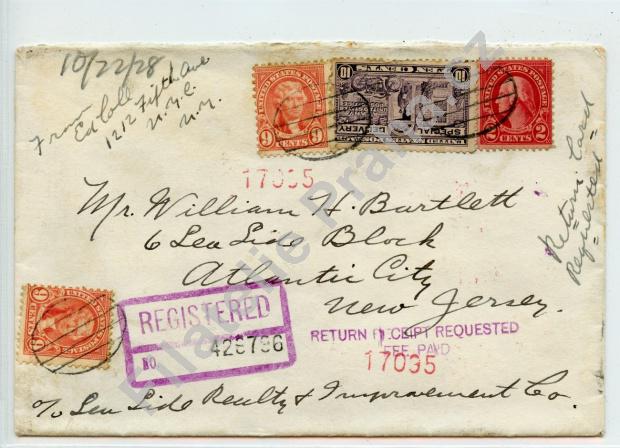 10/22/28
From
Ed Cole
1212 Fifth Ave
N.Y.C.
N.Y.
UNITED STATES POSTAGE
9 CENTS 9
10 TEN CENTS 10
SPECIAL DELIVERY
UNITED STATES POSTAGE
2 CENTS 2
17035
Mr. William H. Bartlett
6 Sea Side Block
Atlantic City
New Jersey.
Return Card
Requested
REGISTERED
NO. 429796
RETURN RECEIPT REQUESTED
FEE PAID
17035
c/o Sea Side Realty & Improvement Co.
Filatelie Praha.cz